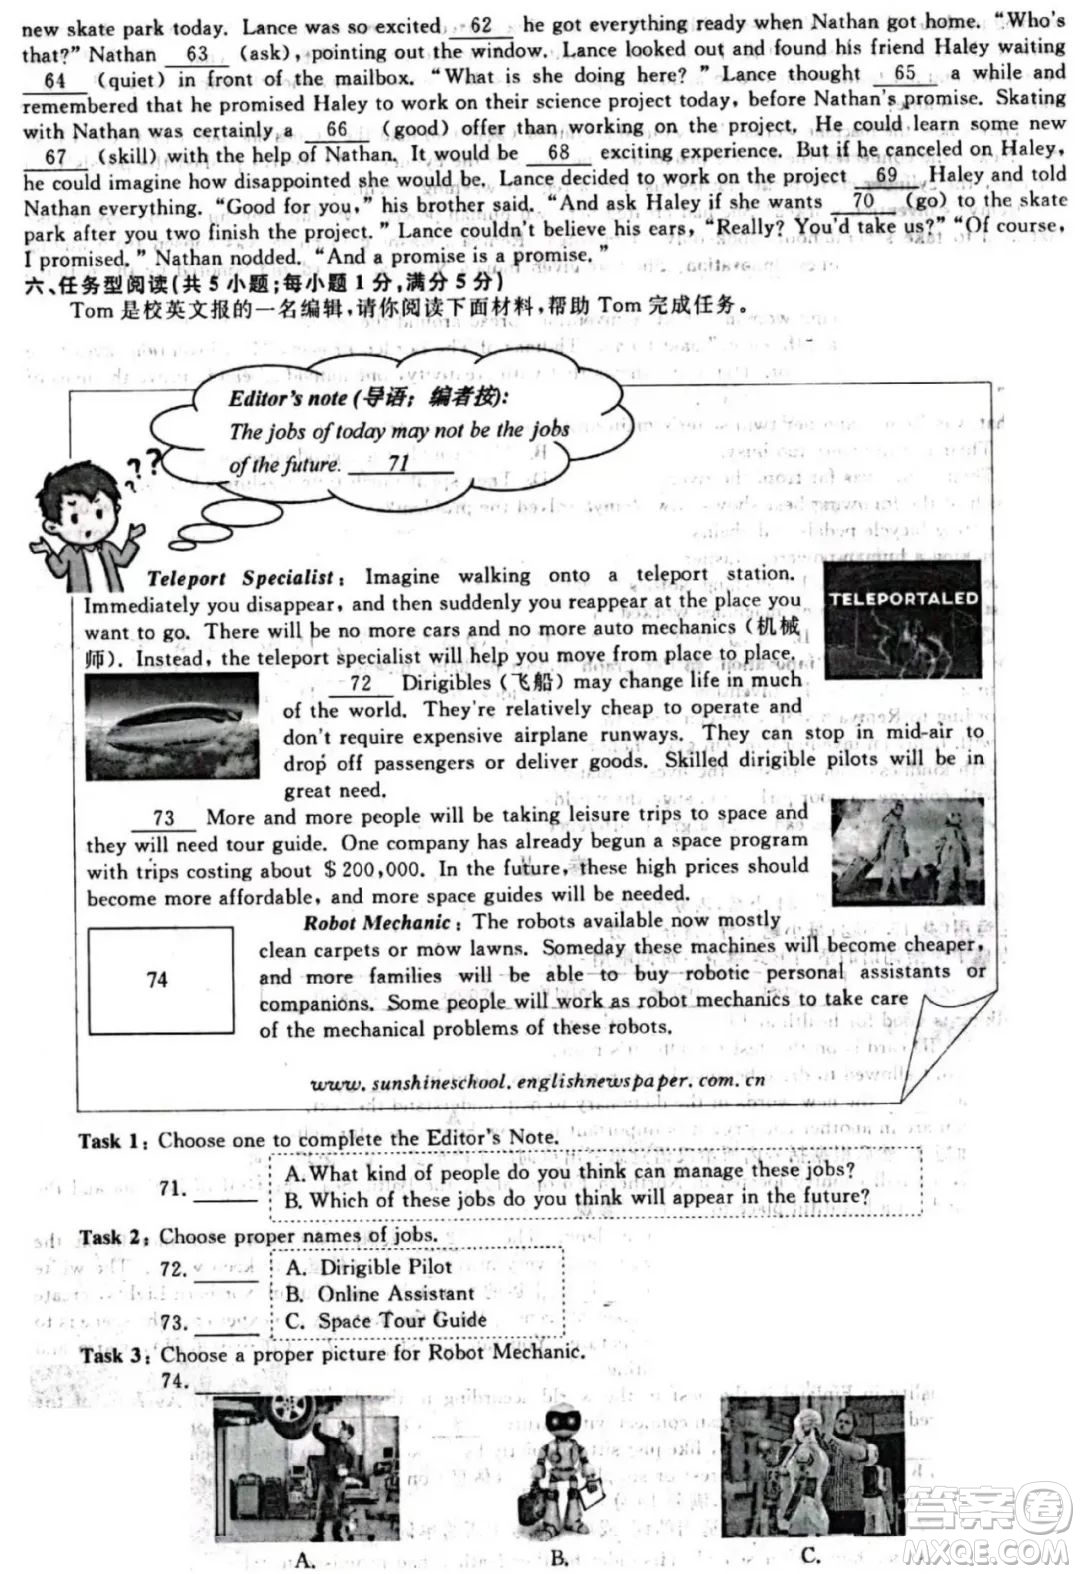 new skate park today. Lance was so excited 62 he got everything ready when Nathan got home. “Who’s
that?” Nathan 63 (ask), pointing out the window. Lance looked out and found his friend Haley waiting
64 (quiet) in front of the mailbox. “What is she doing here? ” Lance thought 65 a while and
remembered that he promised Haley to work on their science project today, before Nathan’s promise. Skating
with Nathan was certainly a 66 (good) offer than working on the project. He could learn some new
67 (skill) with the help of Nathan. It would be 68 exciting experience. But if he canceled on Haley,
he could imagine how disappointed she would be. Lance decided to work on the project 69 Haley and told
Nathan everything. “Good for you,” his brother said. “And ask Haley if she wants 70 (go) to the skate
park after you two finish the project. ” Lance couldn’t believe his ears, “Really? You’d take us?” “Of course,
I promised. ” Nathan nodded. “And a promise is a promise. ”
六、任务型阅读(共 5 小题;每小题 1 分,满分 5 分)
Tom 是校英文报的一名编辑,请你阅读下面材料,帮助 Tom 完成任务。
Editor’s note (导语; 编者按):
The jobs of today may not be the jobs
of the future. 71
???
Teleport Specialist: Imagine walking onto a teleport station.
Immediately you disappear, and then suddenly you reappear at the place you
want to go. There will be no more cars and no more auto mechanics (机械
师). Instead, the teleport specialist will help you move from place to place.
TELEPORTALED
72 Dirigibles (飞船) may change life in much
of the world. They’re relatively cheap to operate and
don’t require expensive airplane runways. They can stop in mid-air to
drop off passengers or deliver goods. Skilled dirigible pilots will be in
great need.
73 More and more people will be taking leisure trips to space and
they will need tour guide. One company has already begun a space program
with trips costing about $ 200,000. In the future, these high prices should
become more affordable, and more space guides will be needed.
74
Robot Mechanic: The robots available now mostly
clean carpets or mow lawns. Someday these machines will become cheaper,
and more families will be able to buy robotic personal assistants or
companions. Some people will work as robot mechanics to take care
of the mechanical problems of these robots.
www. sunshineschool. englishnewspaper. com. cn
Task 1: Choose one to complete the Editor’s Note.
71. ______ A. What kind of people do you think can manage these jobs?
B. Which of these jobs do you think will appear in the future?
Task 2: Choose proper names of jobs.
72. ______ A. Dirigible Pilot
B. Online Assistant
73. ______ C. Space Tour Guide
Task 3: Choose a proper picture for Robot Mechanic.
74. ______
A. B. C.
答案圈
MXQE.COM